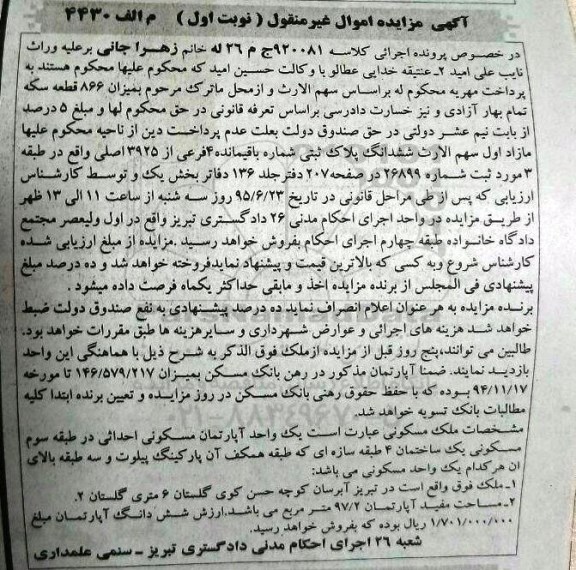 آگهی مزایده اموال غیرمنقول ( نوبت اول ) م الف ۴۴۳۰
در خصوص پرونده اجرائی کلاسه ۹۲۰۰۸۱ج م ۲۶ له خانم زهـرا جانی برعلیه وراث
نایب علی امید ۲ـ عتیقه خدایی عطالو با وکالت حسین امید که محکوم علیها محکوم هستند به
پرداخت مهریه محکوم له براساس سهم الارث و ازمحل ماترک مرحوم بمیزان ۸۶۶ قطعه سکه
تمام بهار آزادی و نیز خسارت دادرسی براساس تعرفه قانونی در حق محکوم لها و مبلغ ۵ درصد
از بابت نیم عشر دولتی در حق صندوق دولت بعلت عدم پرداخت دین از ناحیه محکوم علیها
مازاد اول سهم الارث ششدانگ پلاک ثبتی شماره باقیمانده۴فرعی از ۳۹۲۵ اصلی واقع در طبقه
۳مورد ثبت شماره ۲۶۸۹۹ در صفحه۲۰۷ دفترجلد ۱۳۶ دفاتر بخش یک و توسط کارشناس
ارزیابی که پس از طی مراحل قانونی در تاریخ ۹۵/۶/۲۳ روز سه شنبه از ساعت ۱۱ الی ۱۳ ظهر
از طریق مزایده در واحد اجرای احکام مدنی ۲۶ دادگستری تبریز واقع در اول ولیعصر مجتمع
دادگاه خانواده طبقه چهارم اجرای احکام بفروش خواهد رسید .مزایده از مبلغ ارزیابی شده
کارشناس شروع وبه کسی که بالاترین قیمت و پیشنهاد نماید فروخته خواهد شد و ده درصد مبلغ
پیشنهادی فی المجلس از برنده مزایده اخذ و مابقی حداکثر یکماه فرصت داده میشود .
برنده مزایده به هر عنوان اعلام انصراف نماید ده درصد پیشنهادی به نفع صندوق دولت ضبط
خواهد شد هزینه های اجرائی و عوارض شهرداری و سایرهزینه ها طبق مقررات خواهد بود.
طالبین می توانند،پنج روز قبل از مزایده ازملک فوق الذکر به شرح ذیل با هماهنگی این واحد
بازدید نمایند. ضمنا آپارتمان مذکور در رهن بانک مسکن بمیزان ۱۴۶/۵۷۹/۲۱۷ تا مورخه
۹۴/۱۱/۱۷ بوده که با حفظ حقوق رهنی بانک مسکن در روز مزایده و تعیین برنده ابتدا کلیه
مطالبات بانک تسویه خواهد شد.
مشخصات ملک مسکونی عبارت است یک واحد آپارتمان مسکونی احداثی در طبقه سوم
مسکونی یک ساختمان ۴ طبقه سازه ای که طبقه همکف آن پارکینگ پیلوت و سه طبقه بالای
ان هرکدام یک واحد مسکونی می باشد:
۱ـ ملک فوق واقع است در تبریز آبرسان کوچه حسن کوی گلستان ۶ متری گلستان ۲.
۲ـ مساحت مفید آپارتمان ۹۷/۲ متر مربع می باشد.ارزش شش دانگ آپارتمان مبلغ
۱/۷۰۱/۰۰۰/۰۰۰ ریال بوده که بفروش خواهد رسید.
شعبه ۲۶ اجرای احکام مدنی دادگستری تبریز ـ سنمی علمداری